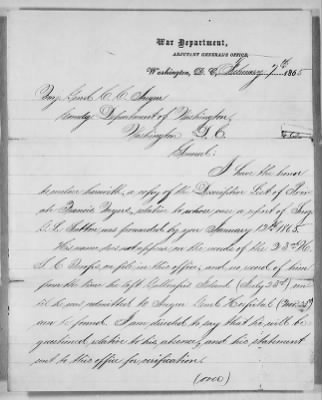 War Department,
ADJUTANT GENERAL'S OFFICE,
Washington, D. C. February 7th 1865
Maj Genl C. C. Augur
Comdg Department of Washington,
Washington D. C.
General:
I have the honor
to enclose herewith, a copy of the Descriptive List of Priv
ate Francis relative to whom a report of Surg
was forwarded by you January 12th 1865.
His name does not appear on the records of the 23rd N.
on file in this office, and no record of him
from the time he left Island (July 23rd) un
til he was admitted to Genl Hospital
are to found. I am directed to say that he will be
questioned relative to his absence, and his statement
sent to this office for verification.
(over)